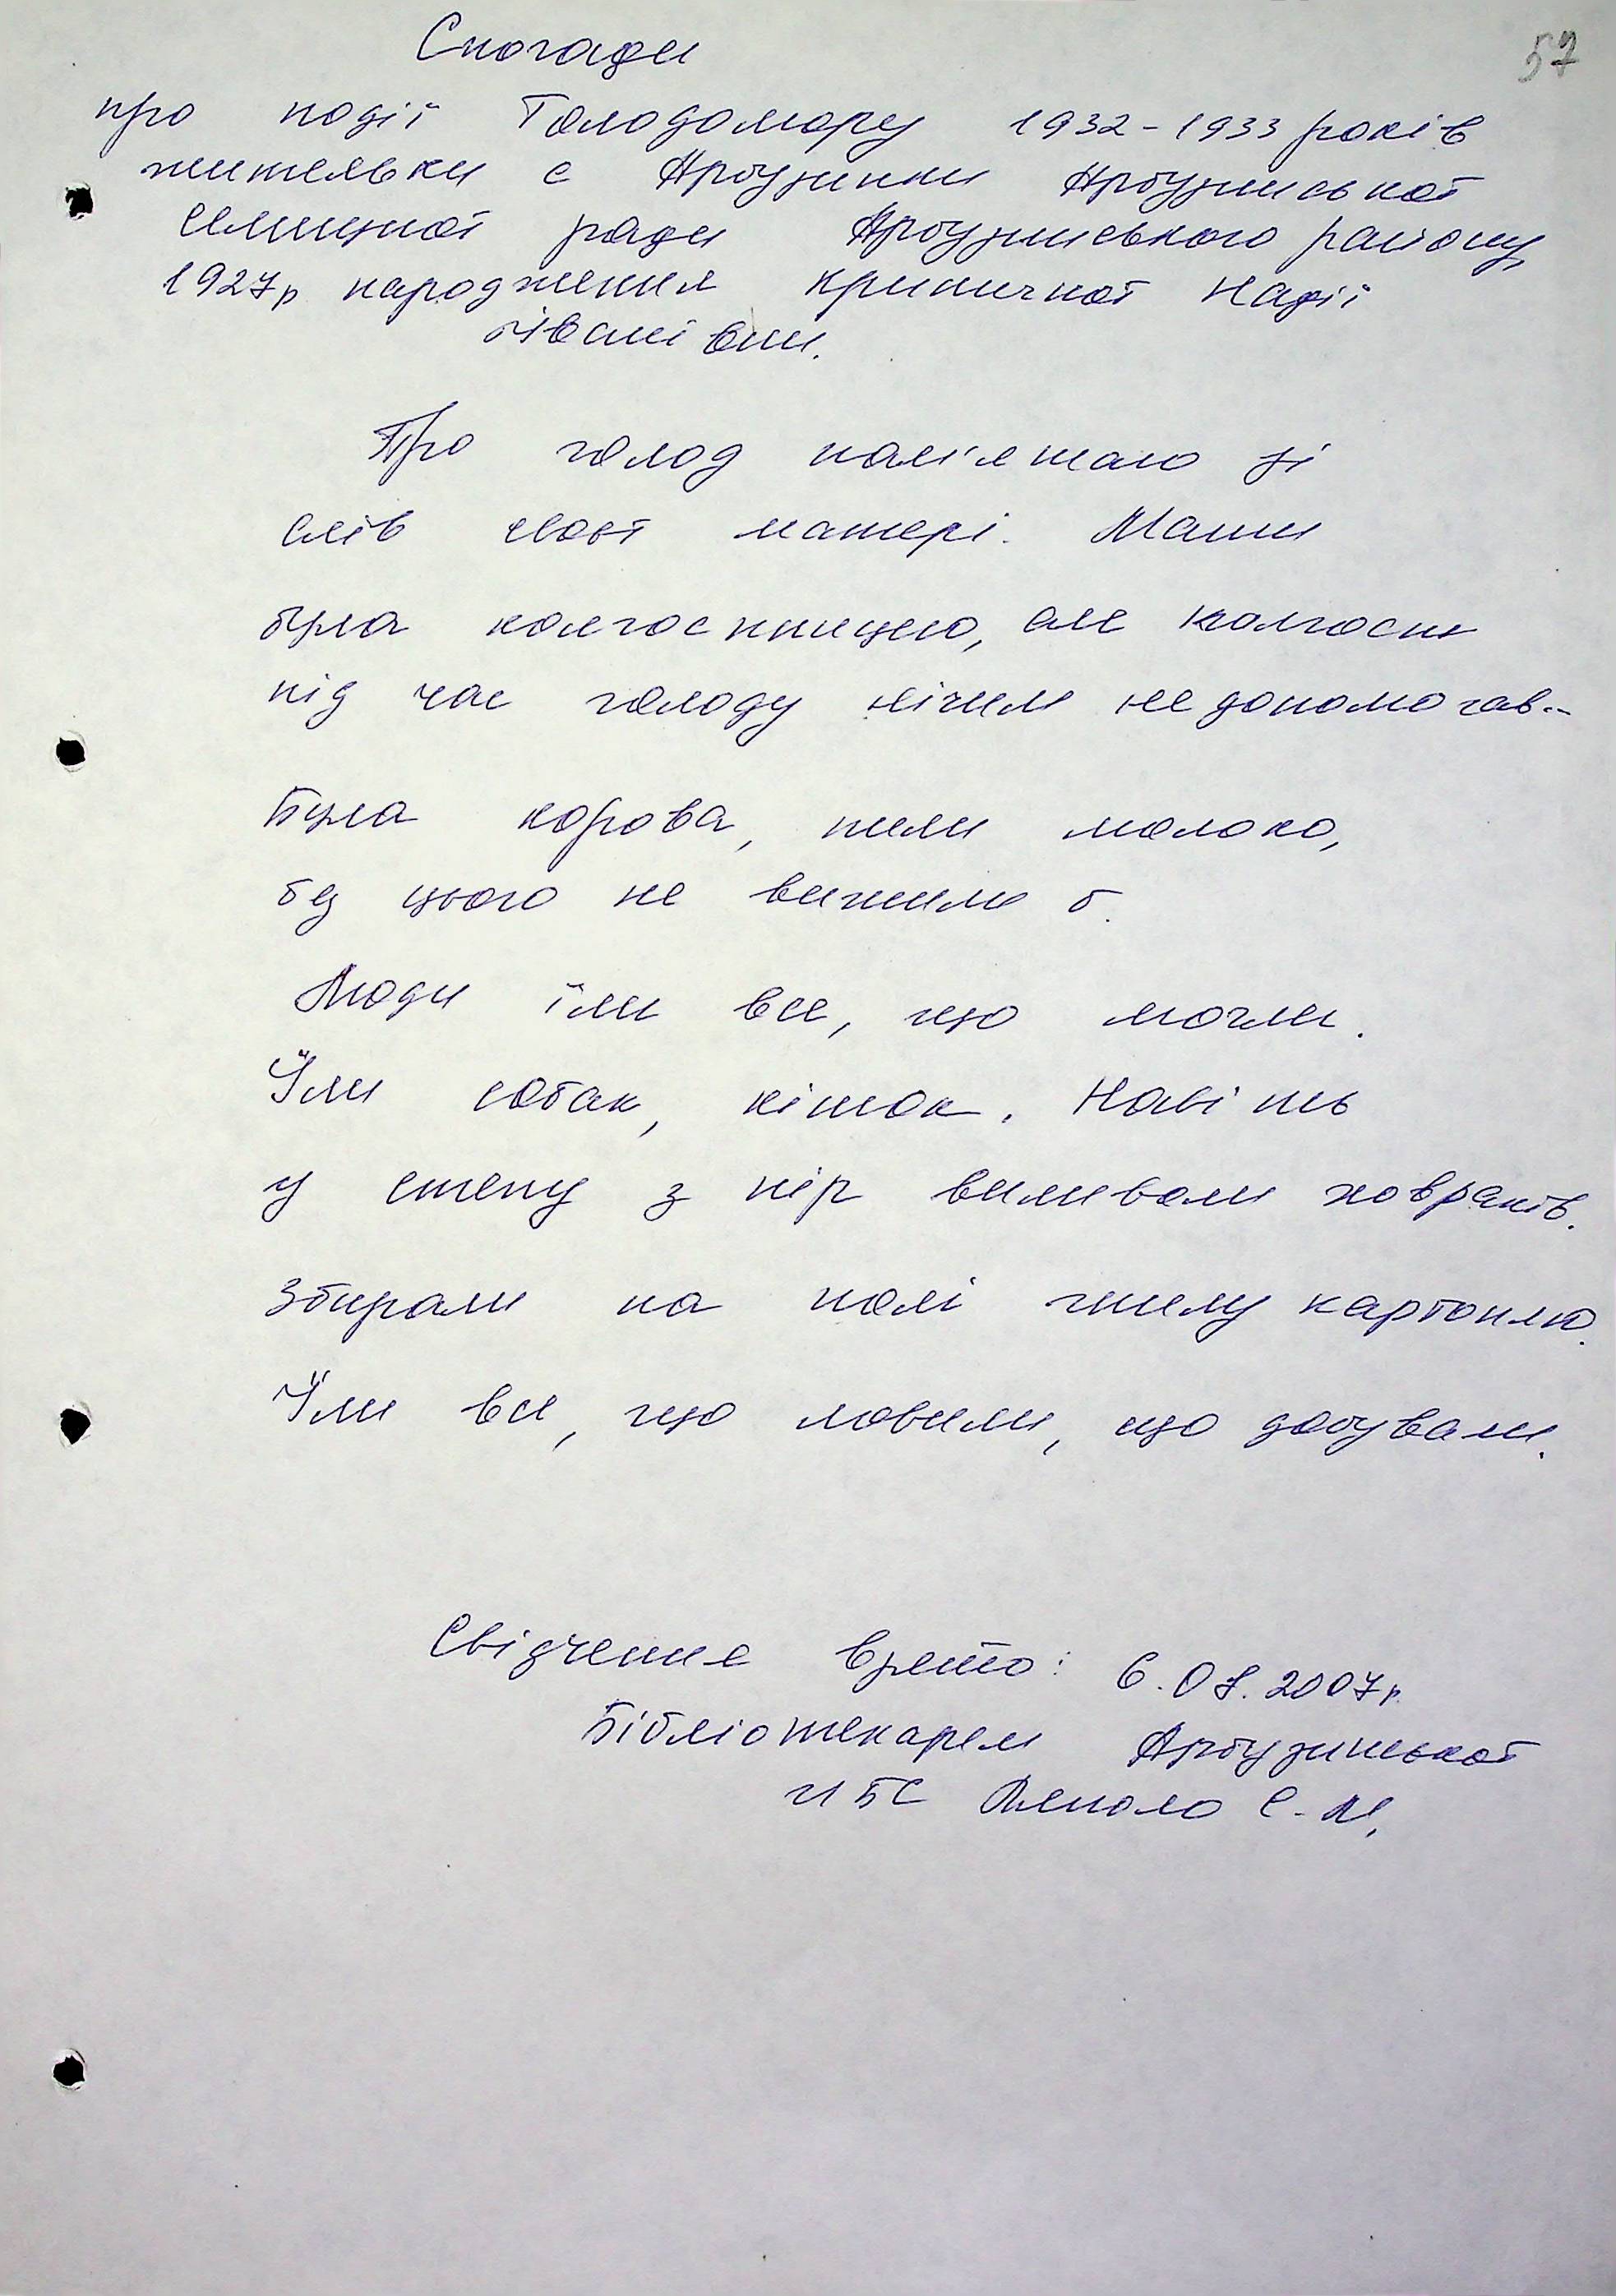 57
Спогади
про події Голодомору 1932-1933 років
жительки с Арбузинки Арбузинської
селищної ради Арбузинського району,
1927р народження Криничної Надії
Іванівни.
Про голод пам'ятаю зі
слів своєї матері. Мати
була колгоспницею, але колгосп
під час голоду нічим не допомогав..
Була корова, пили молоко,
без цього не вижили б.
Люди їли все, що могли.
Їли собак, кішок. Навіть
у степу з нір виливали ховрахів.
Збирали на полі гнилу картоплю.
Їли все, що ловили, що добували.
Свідчення взято: 6.08.2007р.
Бібліотекарем Арбузинської
ЦБС С. М.